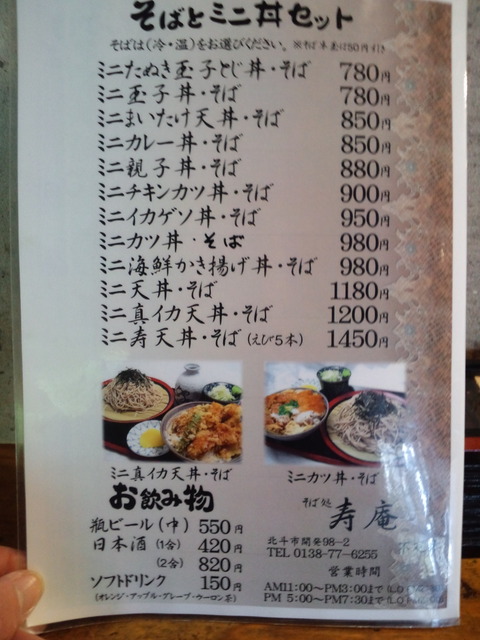 そばとミニ丼セット
そばは(冷・温)をお選びください。※そば半玉は50円引き
ミニたぬき玉子とじ丼・そば 780円
ミニ玉子丼・そば 780円
ミニまいたけ天丼・そば 850円
ミニカレー丼・そば 850円
ミニ親子丼・そば 880円
ミニチキンカツ丼・そば 900円
ミニイカゲソ丼・そば 950円
ミニカツ丼・そば 980円
ミニ海鮮かき揚げ丼・そば 980円
ミニ天丼・そば 1180円
ミニ真イカ天丼・そば 1200円
ミニ寿天丼・そば(えび5本) 1450円
ミニ真イカ天丼・そば
ミニカツ丼・そば
お飲み物
瓶ビール(中) 550円
日本酒(1合) 420円
(2合) 820円
ソフトドリンク 150円
(オレンジ・アップル・グレープ・ウーロン茶)
そば処
寿庵
北斗市開発98-2
TEL 0138-77-6255
営業時間
AM11:00〜PM3:00まで
PM 5:00〜PM7:30まで